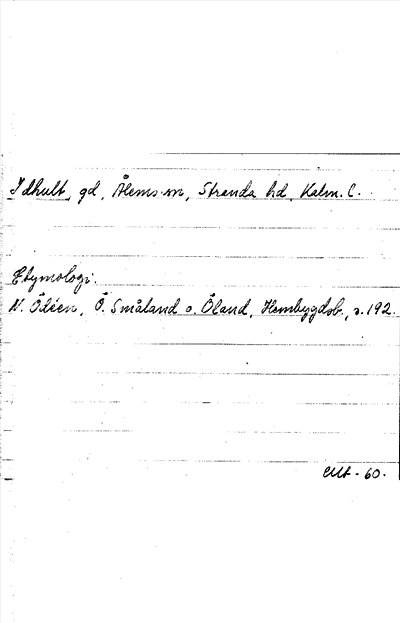 Idhult, gd, Ålems sn, Stranda hd, Kalm. l.
Etymologi.
N. Ödéen, Ö. Småland o. Öland, Hembygdsb., s. 192.
-60.